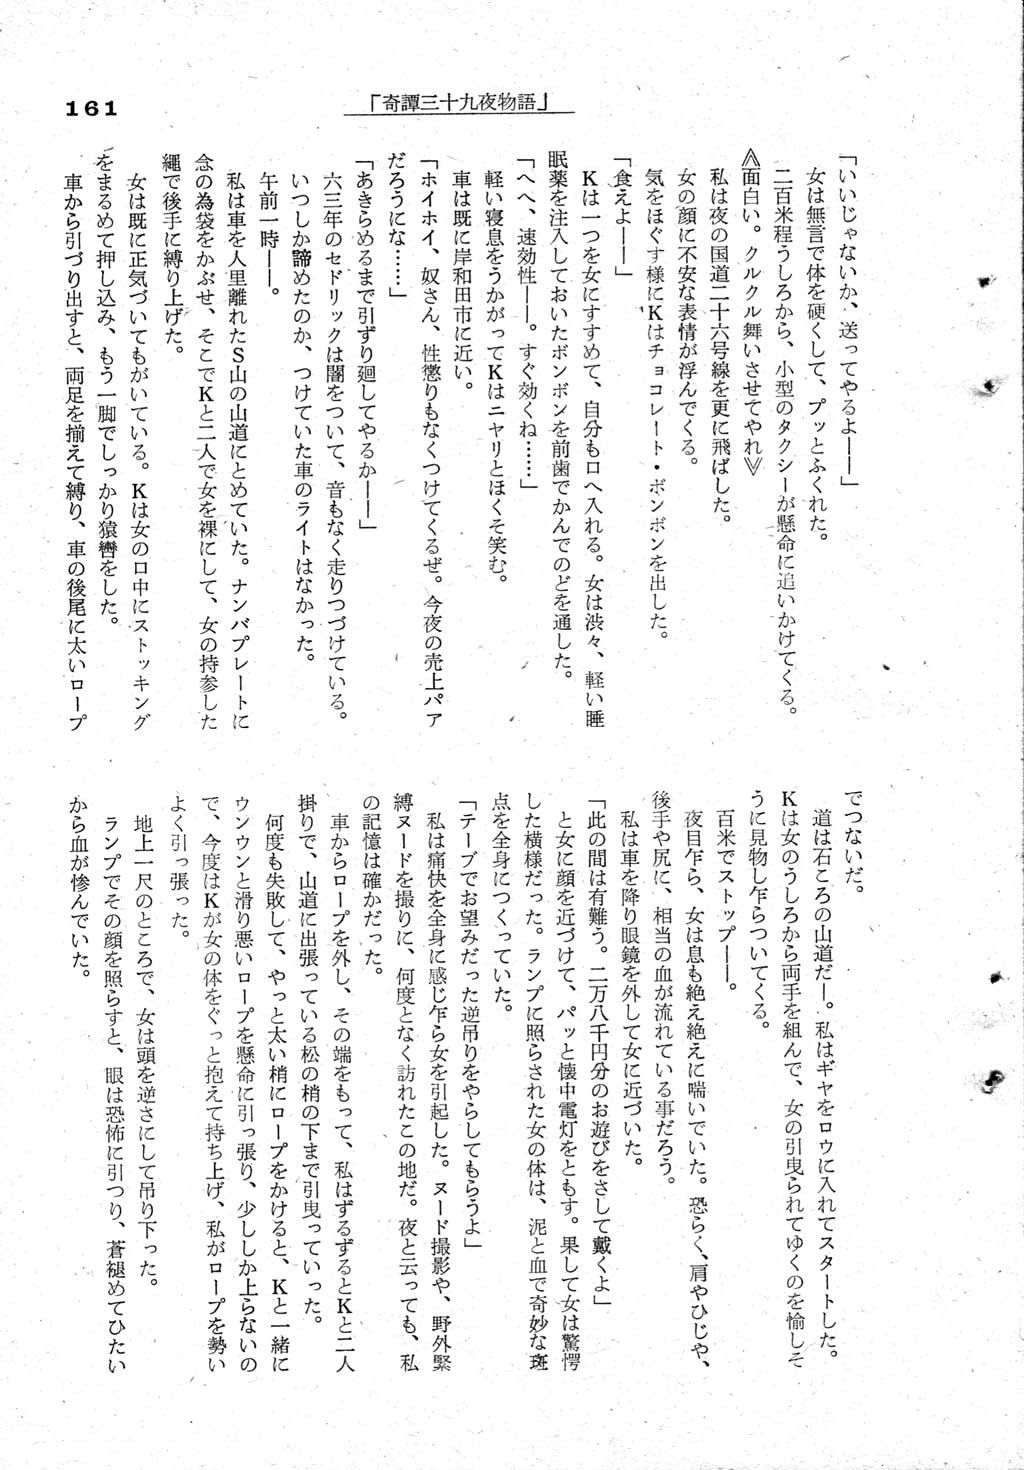 161
「奇譚三十九夜物語」
「いいじゃないか、送ってやるよ――」
女は無言で体を硬くして、プッとふくれた。
二百米程うしろから、小型のタクシーが懸命に追いかけてくる。
≪面白い。クルクル舞いさせてやれ≫
私は夜の国道二十六号線を更に飛ばした。
女の顔に不安な表情が浮んでくる。
気をほぐす様にKはチョコレート・ボンボンを出した。
「食えよ――」
Kは一つを女にすすめて、自分も口へ入れる。女は渋々、軽い睡
眠薬を注入しておいたボンボンを前歯でかんでのどを通した。
「へへ、速効性――。すぐ効くね……」
軽い寝息をうかがってKはニヤリとほくそ笑む。
車は既に岸和田市に近い。
「ホイホイ、奴さん、性懲りもなくつけてくるぜ。今夜の売上パア
だろうにな……」
「あきらめるまで引ずり廻してやるか――」
六三年のセドリックは闇をついて、音もなく走りつづけている。
いつしか諦めたのか、つけていた車のライトはなかった。
午前一時――。
私は車を人里離れたS山の山道にとめていた。ナンバプレートに
念の為袋をかぶせ、そこでKと二人で女を裸にして、女の持参した
縄で後手に縛り上げた。
女は既に正気づいてもがいている。Kは女の口中にストッキング
をまるめて押し込み、もう一脚でしっかり猿轡をした。
車から引づり出すと、両足を揃えて縛り、車の後尾に太いロープ
でつないだ。
道は石ころの山道だー。私はギヤをロウに入れてスタートした。
Kは女のうしろから両手を組んで、女の引曳られてゆくのを愉しそ
うに見物し乍らついてくる。
百米でストップ――。
夜目乍ら、女は息も絶え絶えに喘いでいた。恐らく、肩やひじや、
後手や尻に、相当の血が流れている事だろう。
私は車を降り眼鏡を外して女に近づいた。
「此の間は有難う。二万八千円分のお遊びをさして戴くよ」
と女に顔を近づけて、パッと懐中電灯をともす。果して女は驚愕
した横様だった。ランプに照らされた女の体は、泥と血で奇妙な斑
点を全身につくっていた。
「テープでお望みだった逆吊りをやらしてもらうよ」
私は痛快を全身に感じ乍ら女を引起した。ヌード撮影や、野外緊
縛ヌードを撮りに、何度となく訪れたこの地だ。夜と云っても、私
の記憶は確かだった。
車からロープを外し、その端をもって、私はずるずるとKと二人
掛りで、山道に出張っている松の梢の下まで引曳っていった。
何度も失敗して、やっと太い梢にロープをかけると、Kと一緒に
ウンウンと滑り悪いロープを懸命に引っ張り、少ししか上らないの
で、今度はKが女の体をぐっと抱えて持ち上げ、私がロープを勢い
よく引っ張った。
地上一尺のところで、女は頭を逆さにして吊り下った。
ランプでその顔を照らすと、眼は恐怖に引つり、蒼褪めてひたい
から血が惨んでいた。